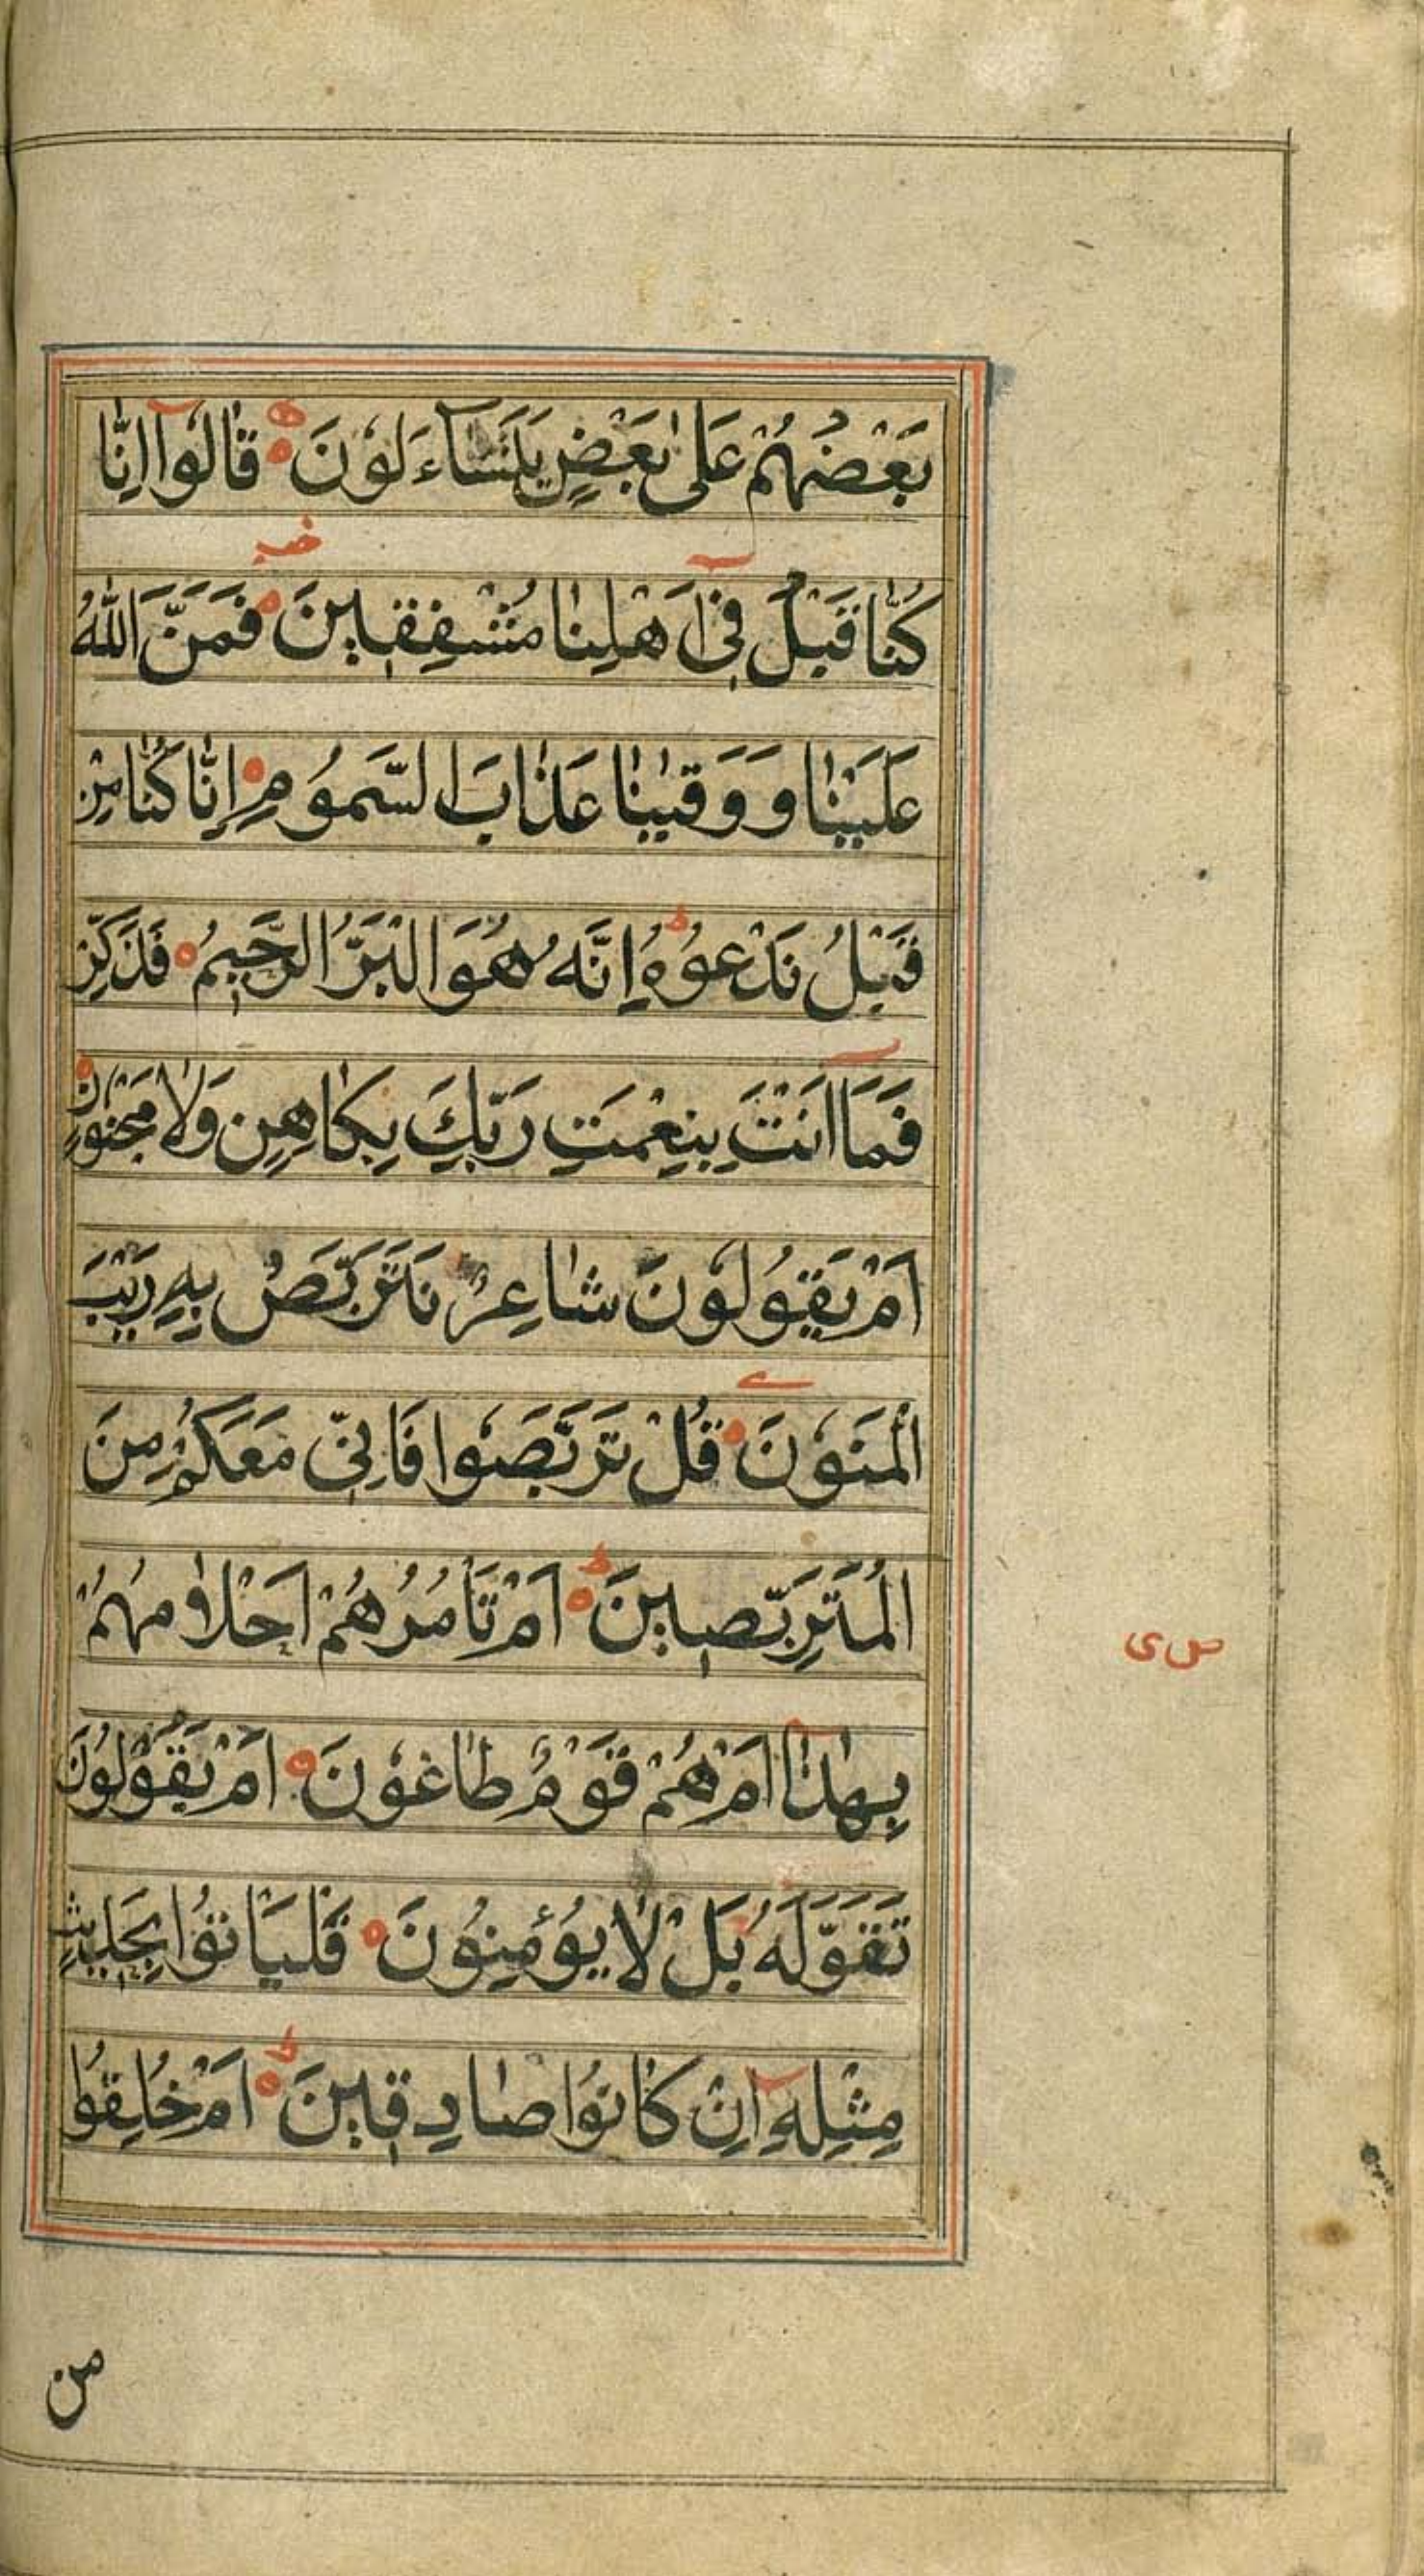 بَعْضُهُمْ عَلٰى بَعْضٍ يَتَسَآءَلُوْنَ ۝ قَالُوْآ اِنَّا
خب
كُنَّا قَبْلُ فِىْٓ اَهْلِنَا مُشْفِقِيْنَ ۝ فَمَنَّ اللّٰهُ
عَلَيْنَا وَ وَقٰينَا عَذَابَ السَّمُوْمِ ۝ اِنَّا كُنَّا مِنْ
قَبْلُ نَدْعُوْهُ ط اِنَّهُ هُوَ الْبَرُّ الرَّحِيْمُ ۝ فَذَكِّرْ
فَمَآ اَنْتَ بِنِعْمَتِ رَبِّكَ بِكَاهِنٍ وَلَا مَجْنُوْنٍ ۝
اَمْ يَقُوْلُوْنَ شَاعِرٌ نَتَرَبَّصُ بِهٖ رَيْبَ
الْمَنُوْنَ ۝ قُلْ تَرَبَّصُوْا فَاِنِّىْ مَعَكُمْ مِنَ
الْمُتَرَبِّصِيْنَ ۝ ط اَمْ تَأْمُرُهُمْ اَحْلَامُهُمْ
ص ى
بِهٰذَآ اَمْ هُمْ قَوْمٌ طَاغُوْنَ ۝ اَمْ يَقُوْلُوْنَ
تَقَوَّلَهُ بَلْ لَا يُؤْمِنُوْنَ ۝ فَلْيَأْتُوْا بِحَدِيْثٍ
مِثْلِهٖٓ اِنْ كَانُوْا صَادِقِيْنَ ۝ ط اَمْ خُلِقُوْا
من